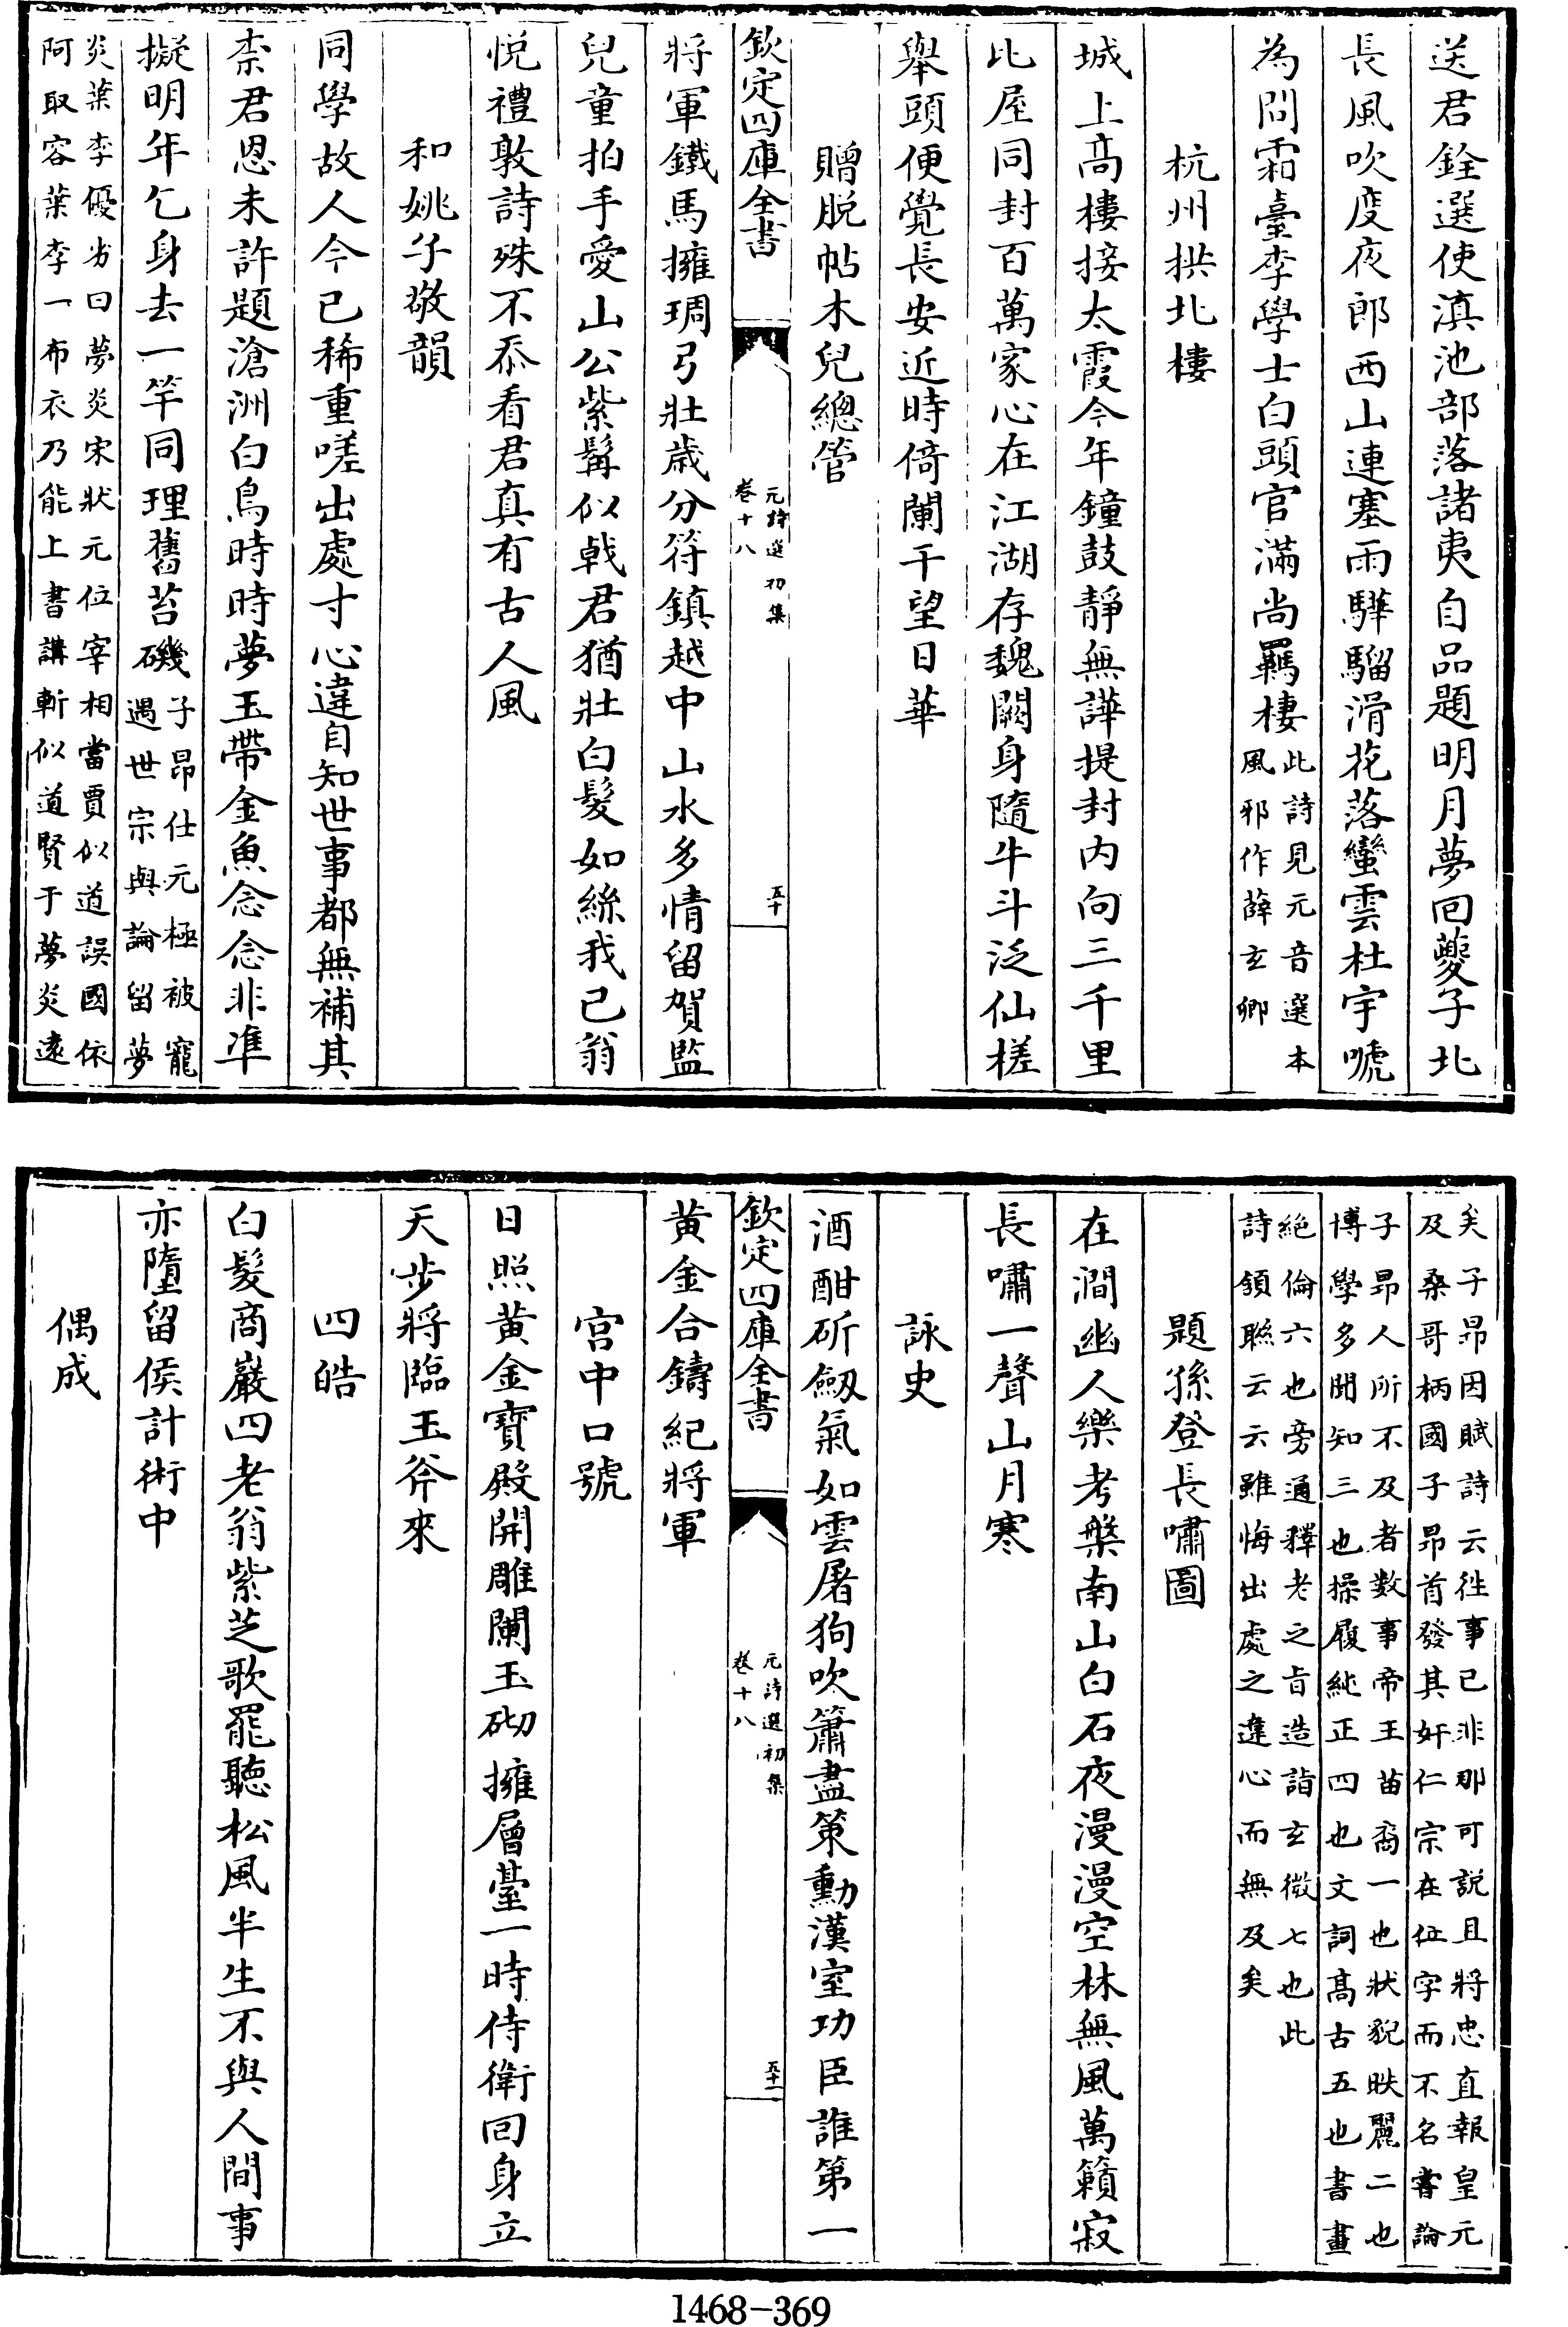 送君銓選使滇池部落諸夷自品題明月夢回夔子北
長風吹度夜郎西山連塞雨驊騮滑花落蠻雲杜宇嗁
為問霜臺李學士白頭官滿尚羈棲此詩見元音選本
風邪作薛玄卿
杭州拱北樓
城上髙樓接太霞今年鐘鼓靜無譁提封内向三千里
比屋同封百萬家心在江湖存魏闕身隨牛斗泛仙槎
舉頭便覺長安近時倚闌干望日華
贈脱帖木兒總管
欽定四庫全書
元詩選初集
卷十八
五十
將軍鐵馬擁琱弓壯歳分符鎮越中山水多情留賀監
兒童拍手愛山公紫髯似戟君猶壯白髮如絲我已翁
悦禮敦詩殊不忝看君真有古人風
和姚子敬韻
同學故人今已稀重嗟出處寸心違自知世事都無補其
柰君恩未許題滄洲白鳥時時夢玉帶金魚念念非凖
擬明年乞身去一竿同理舊苔磯子昂仕元極被寵
遇世宗與論留夢
炎葉李優劣曰夢炎宋狀元位宰相當賈似道誤國依
阿取容葉李一布衣乃能上書講斬似道賢于夢炎遠
矣子昻因賦詩云徃事已非那可説且將忠直報皇元
及桑哥柄國子昻首發其奸仁宗在位字而不名嘗論
子昻人所不及者数事帝王苗裔一也狀貌昳麗二也
博學多聞知三也操履純正四也文詞髙古五也書畫
絶倫六也旁通釋老之旨造詣玄微七也此
詩頷聨云云雖悔出處之違心而無及矣
題孫登長嘯圖
在澗幽人樂考槃南山白石夜漫漫空林無風萬籟寂
長嘯一聲山月寒
詠史
酒酣斫劒氣如雲屠狗吹簫盡策勳漢室功臣誰第一
欽定四庫全書
元詩選初集
卷十八
五十一
黄金合鑄紀將軍
宫中口號
日照黄金寶殿開雕闌玉砌擁層臺一時侍衛回身立
天步將臨玉斧來
四皓
白髮商巖四老翁紫芝歌罷聽松風半生不與人間事
亦墮留侯計術中
偶成
1468-369